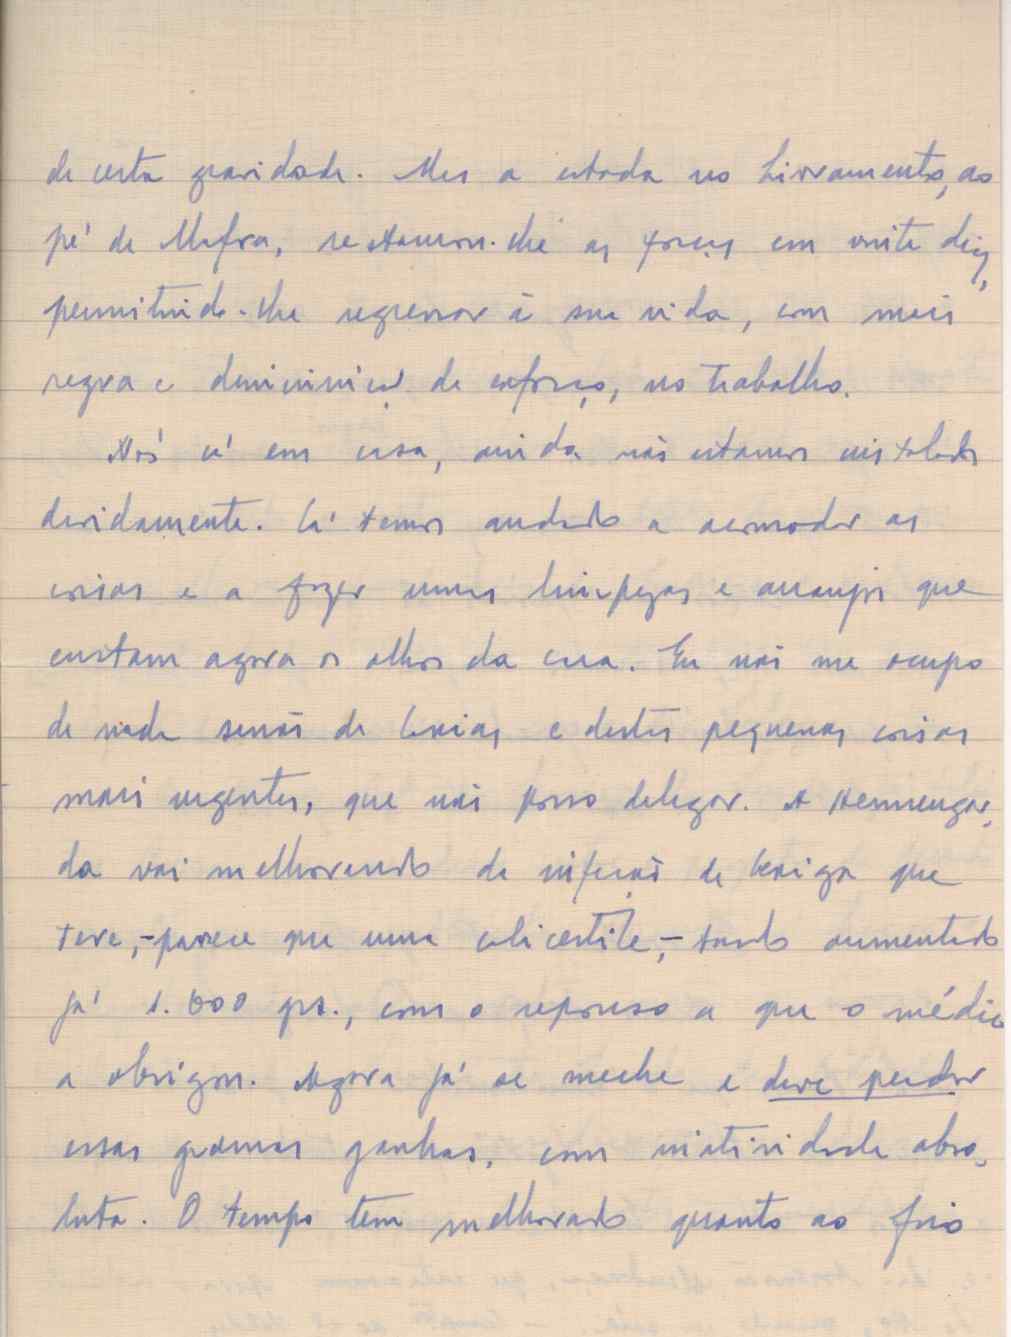 de certa gravidade. Mas a estada no Livramento, ao
pé de Mafra, restauron-lhe as forças em vinte dias,
permitindo-lhe regressar à sua vida, com mais
regra e diminuiçaõ de esforço, no trabalho.
Nós cá em casa, ainda não estamos instalados
devidamente. Cá temos andado a acomodar as
coisas e a fazer umas limpezas e arranjos que
custam agora os olhos da cara. Eu não me ocupo
de nada senão de e destas pequenas coisas
mais urgentes, que não posso delegar. A Hermengar-
da vai melhorando da infeção de bexiga que
teve, - parece que uma colicistite, - tendo aumentado
já 1.600 grs., com o repouso a que o médico
a obrigou. Agora já se meche e deve perder
essas gramas ganhas, com inatividade abso-
luta. O tempo tem melhorado quanto ao frio